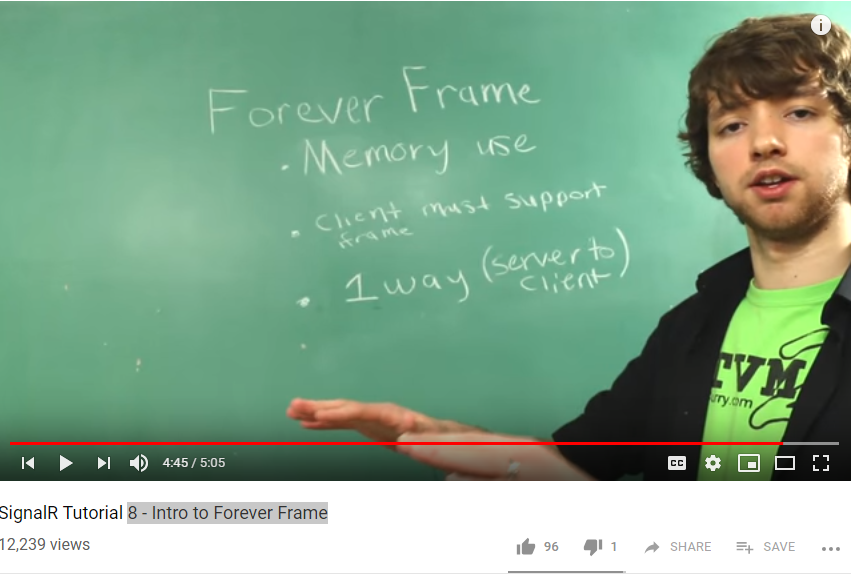 Forever Frame
. Memory use
. Client must support
iframe
. 1 way (server to)
client
TVM
rry.com
4:45 / 5:05
CC
SignalR Tutorial 8 - Intro to Forever Frame
12,239 views
96
1
SHARE
SAVE